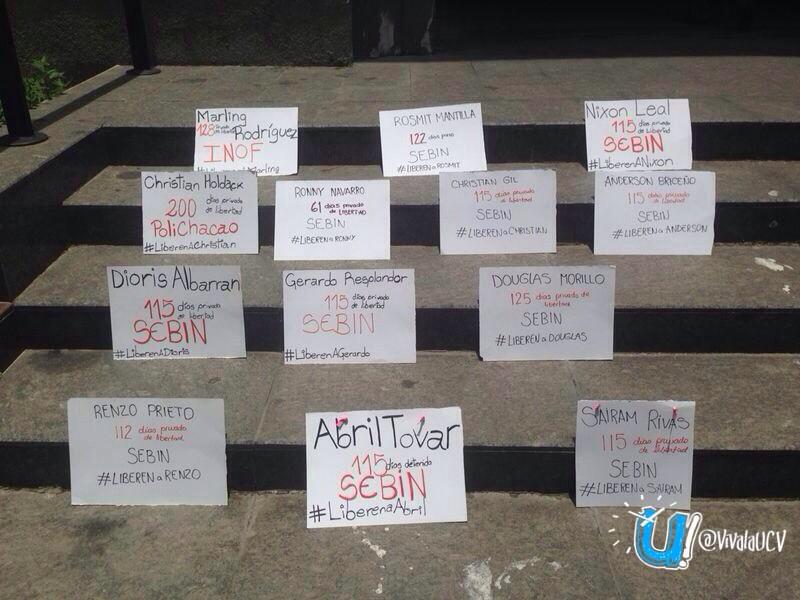 Marling
128 Rodríguez
INOF
ROSMIT MANTILLA
122 días preso
SEBIN
#LIBEREN a ROSMIT
Nixon Leal
115 días privado de libertad
SEBIN
#LiberenANixon
Christian Holdack
200 días privado de libertad
PoliChacao
#LiberenAChristian
RONNY NAVARRO
61 días privado de LIBERTAD
SEBIN
#LIBEREN a RONNY
CHRISTIAN GIL
115 días privado de libertad
SEBIN
#LIBEREN a CHRISTIAN
ANDERSON BRICEÑO
115 días privado de libertad
SEBIN
#LIBEREN a ANDERSON
Dioris Albarran
115 días privado de libertad
SEBIN
#LiberenADioris
Gerardo Resplandor
115 días privado de libertad
SEBIN
#LiberenAGerardo
DOUGLAS MORILLO
125 días privado de libertad
SEBIN
#LIBEREN a DOUGLAS
RENZO PRIETO
112 días privado de libertad
SEBIN
#LIBEREN a RENZO
Abril Tovar
115 días detenido
SEBIN
#Liberen a Abril
SAIRAM RIVAS
115 días privado de libertad
SEBIN
#LIBEREN a SAIRAM
U! @VivalaUCV